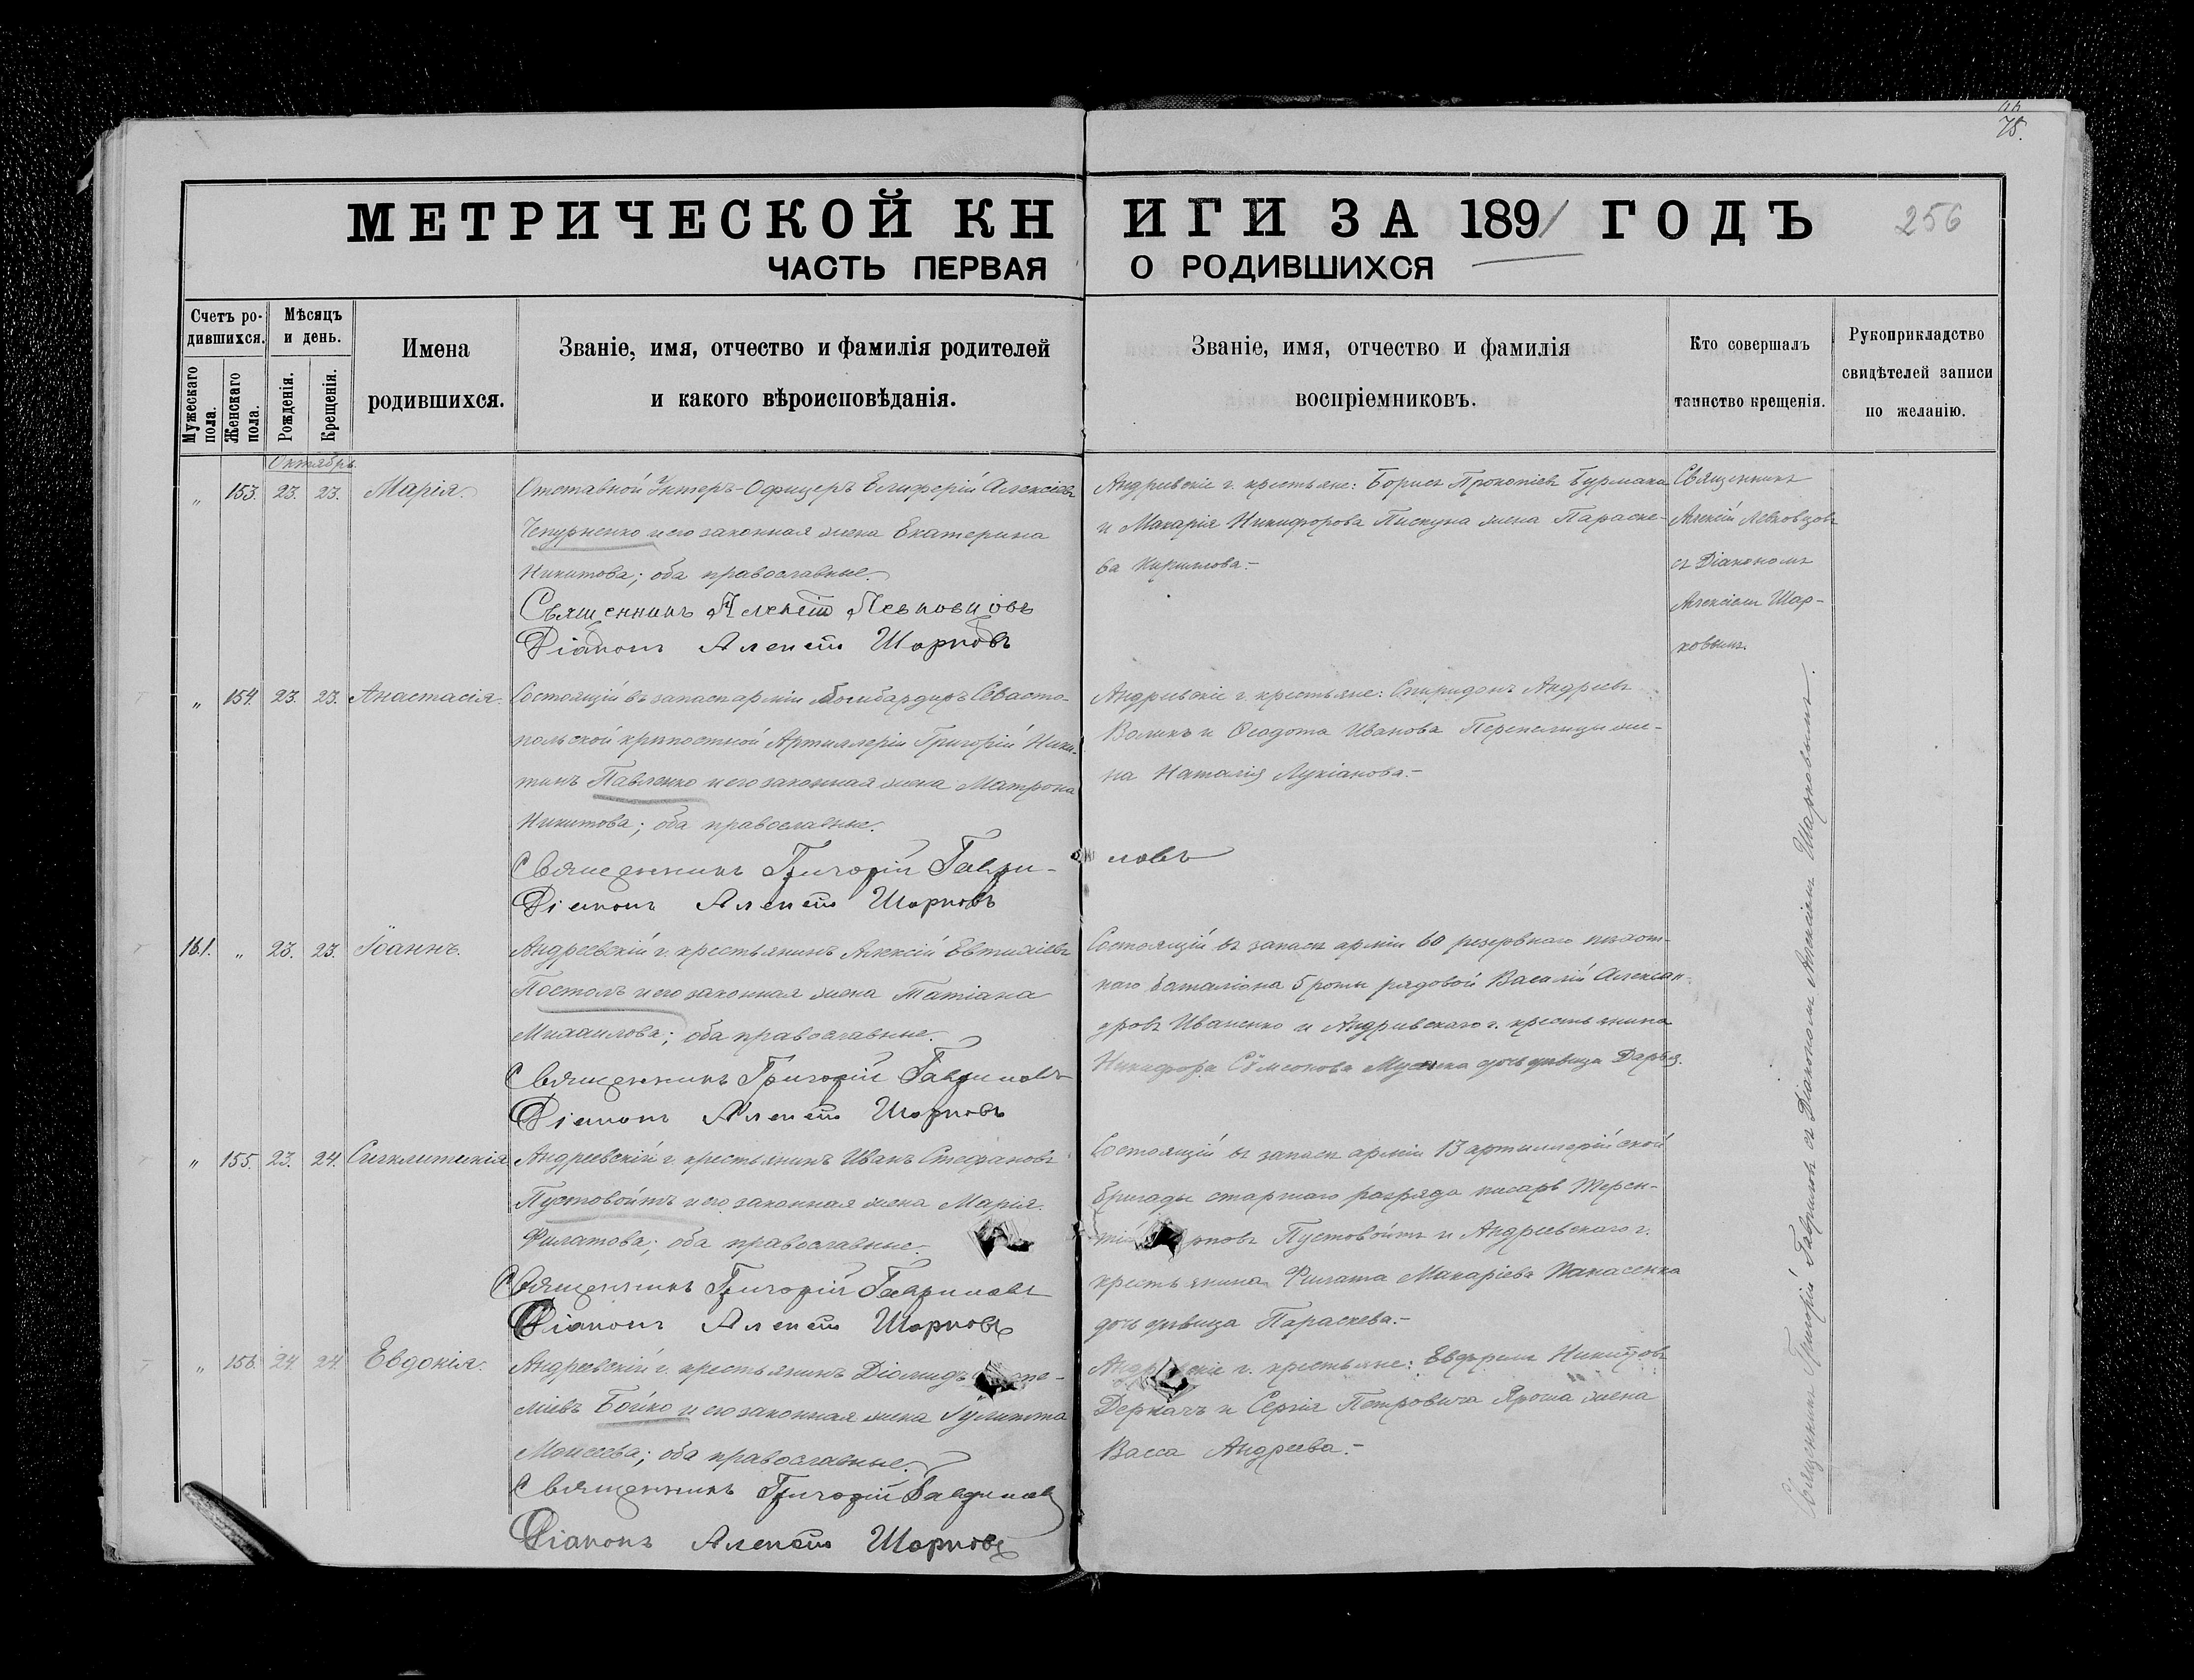 75.
МЕТРИЧЕСКОЙ КНИГИ ЗА 1891 ГОДЪ
256
ЧАСТЬ ПЕРВАЯ О РОДИВШИХСЯ
Счетъ родившихся.
Мужескаго пола.
Женскаго пола.
Мѣсяцъ и день.
Рожденія.
Крещенія.
Имена родившихся.
Званіе, имя, отчество и фамилія родителей и какого вѣроисповѣданія.
Званіе, имя, отчество и фамилія воспріемниковъ.
Кто совершалъ таинство крещенія.
Рукоприкладство свидѣтелей записи по желанію.
Октябрь
„ 153. 23. 23. Марія
Отставной Унтеръ-Офицеръ Елиферій Алексіевъ
Чепурненко и его законная жена Екатерина
Никитова; оба православные.
Священникъ Алексій Левковцовъ
Діаконъ Алексій Шарковъ
Андреевскіе г. крестьяне: Борисъ Прокопіевъ Бурмака
и Макарія Никифорова Пискуна жена Параске-
ва Кириллова.-
Священникъ
Алексій Левковцовъ
съ Діакономъ
Алексіемъ Шар-
ковымъ.
„ 154. 23. 23. Анастасія.
Состоящій въ запасѣ арміи Бомбардиръ Севасто-
польской крѣпостной Артиллеріи Григорій Ники-
тинъ Павленко и его законная жена Матрона
Никитова; оба православные.
Священникъ Григорій Гаври-ловъ
Діаконъ Алексій Шарковъ
Андреевскіе г. крестьяне: Спиридонъ Андреевъ
Воликъ и Ѳеодота Иванова Перепелицы же-
на Наталія Лукіанова.-
161. „ 23. 23. Іоаннъ.
Андреевскій г. крестьянинъ Алексій Евтихіевъ
Постолъ и его законная жена Татіана
Михаилова; оба православные.
Священникъ Григорій Гавриловъ
Діаконъ Алексій Шарковъ
Состоящій въ запасѣ арміи 60 резервнаго пѣхот-
наго баталіона 5 роты рядовой Василій Алексан-
дровъ Иваненко и Андреевскаго г. крестьянина
Никифора Сѵмеонова дочь дѣвица Дарья.
„ 155. 23. 24. Сигклитикія
Андреевскій г. крестьянинъ Иванъ Стефановъ
Пустовойтъ и его законная жена Марія
Филатова; оба православные.
Священникъ Григорій Гавриловъ
Діаконъ Алексій Шарковъ
Состоящій въ запасѣ арміи 13 артиллерійской
бригады старшаго разряда писарь Терен-
тій Пустовойтъ и Андреевскаго г.
крестьянина Филата Макаріева Панасенка
дочь дѣвица Параскева.-
„ 156. 24. 24. Евдокія.
Андреевскій г. крестьянинъ Діомидъ
міевъ Бойко и его законная жена Іулитта
Моисеева; оба православные.
Священникъ Григорій Гавриловъ
Діаконъ Алексій Шарковъ
Андреевскіе г. крестьяне: Евфремъ Никитовъ
Деркачъ и Сергія Петровича Яроша жена
Васса Андреева.-
Священникъ Григорій Гавриловъ съ Діакономъ Алексіемъ Шарковымъ.